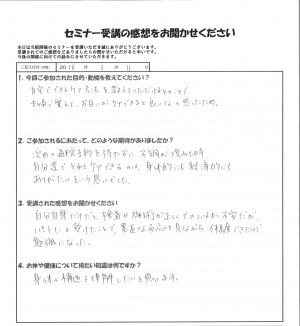 セミナー受講の感想をお聞かせください
本日は当院開催のセミナーを受講いただき誠にありがとうございます。
受講されてのご感想などありましたらお聞かせいただけると幸いです。
今後の開催に向けての励みにさせていただきます。
ご記入日(西暦) 2018年 3月 11日
1. 今日ご参加された目的・動機を教えてください?
自宅でできるケア方法を教えていただけるとのことで、
お互いがケアできると良いな、と思ったため。
2. ご参加されるにあたって、どのような期待がありましたか?
次回の施術予約を待たずに、不調が現れた時
自分達でそれをケアできるのは、身体的にも経済的にも
ありがたいという思いでした。
3. 受講された感想をお聞かせください
自分自身だけだと、検査や施術が正しくできているか不安だが、
パートナーと受けたことで、素直な反応を見ながら体感できたので
勉強になった。
4. お体や健康について得たい知識は何ですか?
身体の構造を理解したいと思います。